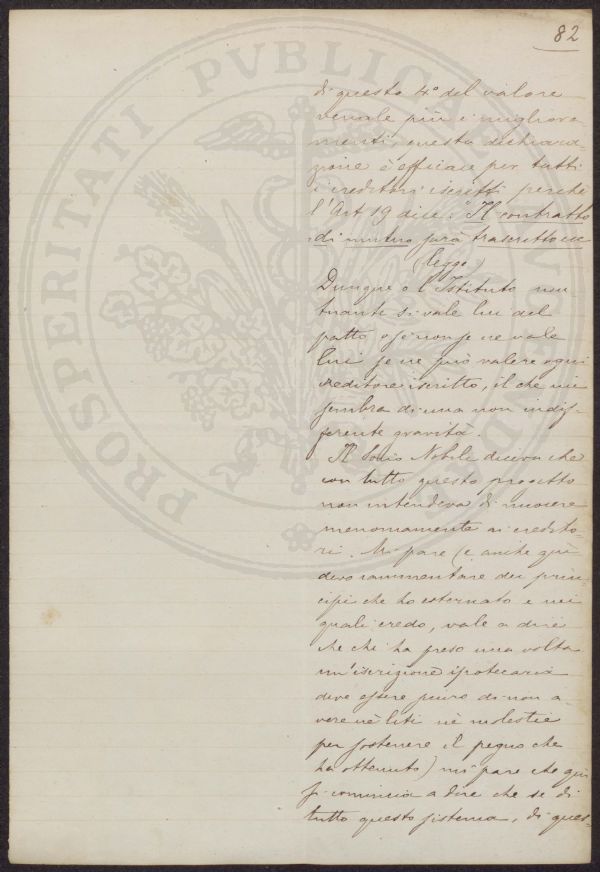 82
di questo 4° del valore
venale più i migliora
menti, questa dichiara-
zione è efficace per tutti
i creditori iscritti perchè
l'Art 19 dice: "Il contratto
di mutuo sarà trascritto ecc
(legge)
Dunque o l'Istituto mu-
tuante si vale lui del
patto, o se non se ne vale
lui se ne può valere ogni
creditore iscritto, il che mi
sembra di una non indif-
ferente gravità.
Il Socio Nobili diceva che
con tutto questo progetto
non intendeva di nuocere
menomamente ai credito-
ri. Mi pare (e anche qui
devo rammentare dei prin-
cipi che ho esternato e nei
quali credo, vale a dire
che chi ha preso una volta
un'iscrizione ipotecaria
deve essere sicuro di non a-
vere nè liti nè molestie
per sostenere il pegno che
ha ottenuto) mi pare che qui
si comincia a dire che se di
tutto questo sistema, di ques-
PROSPERITATI PVBLICAE AVGENDAE